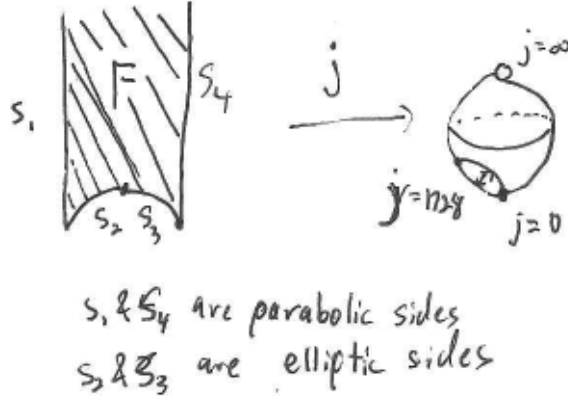 j=∞
F
j
S₄
S₁
S₂ S₃
j=1728
j=0
S₁ & S₄ are parabolic sides
S₂ & S₃ are elliptic sides